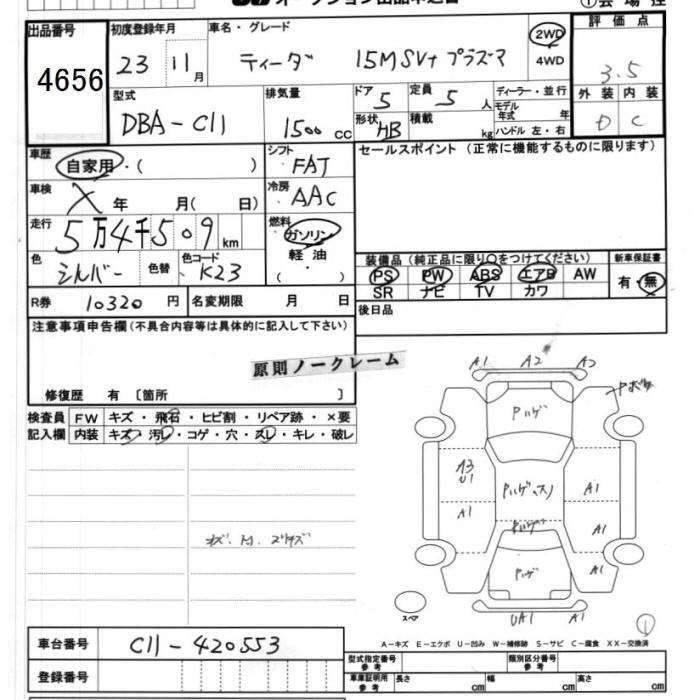 オークション出品申込書
① 会場控
出品番号
4656
初度登録年月
23 11月
車名・グレード
ティーダ 15M SV+プラズマ
2WD
4WD
評価点
3.5
外装 内装
D C
型式
DBA-C11
排気量
1500 cc
ドア 5
形状 HB
定員 5 人
積載 kg
ディーラー・並行
モデル年式 年
ハンドル 左・右
車歴
自家用・( )
シフト
FAT
セールスポイント (正常に機能するものに限ります)
車検
X 年 月( 日)
冷房
AAC
走行
5万4千509km
燃料
ガソリン
軽油・
( )
色
シルバー
色替
色コード
K23
装備品 (純正品に限り○をつけてください)
PS PW ABS エアB AW
SR ナビ TV カワ
新車保証書
有・無
R券 10320 円
名変期限 月 日
後日品
注意事項申告欄(不具合内容等は具体的に記入して下さい)
原則ノークレーム
修復歴 有 〔箇所 〕
検査員
記入欄
FW キズ・飛石・ヒビ割・リペア跡・×要
内装 キズ・汚レ・コゲ・穴・スレ・キレ・破レ
A1 A2 A2
Pハゲ
A3
U1
Pハゲ
A1
A1
Pハゲ
A1
Pハゲ
UA1 A1
スペア
A-キズ E-エクボ U-凹み W-補修跡 S-サビ C-腐食 XX-交換済
車台番号
C11-420553
登録番号
型式指定番号
参考
類別区分番号
参考
車庫証明用
参考
長さ cm
幅 cm
高さ cm